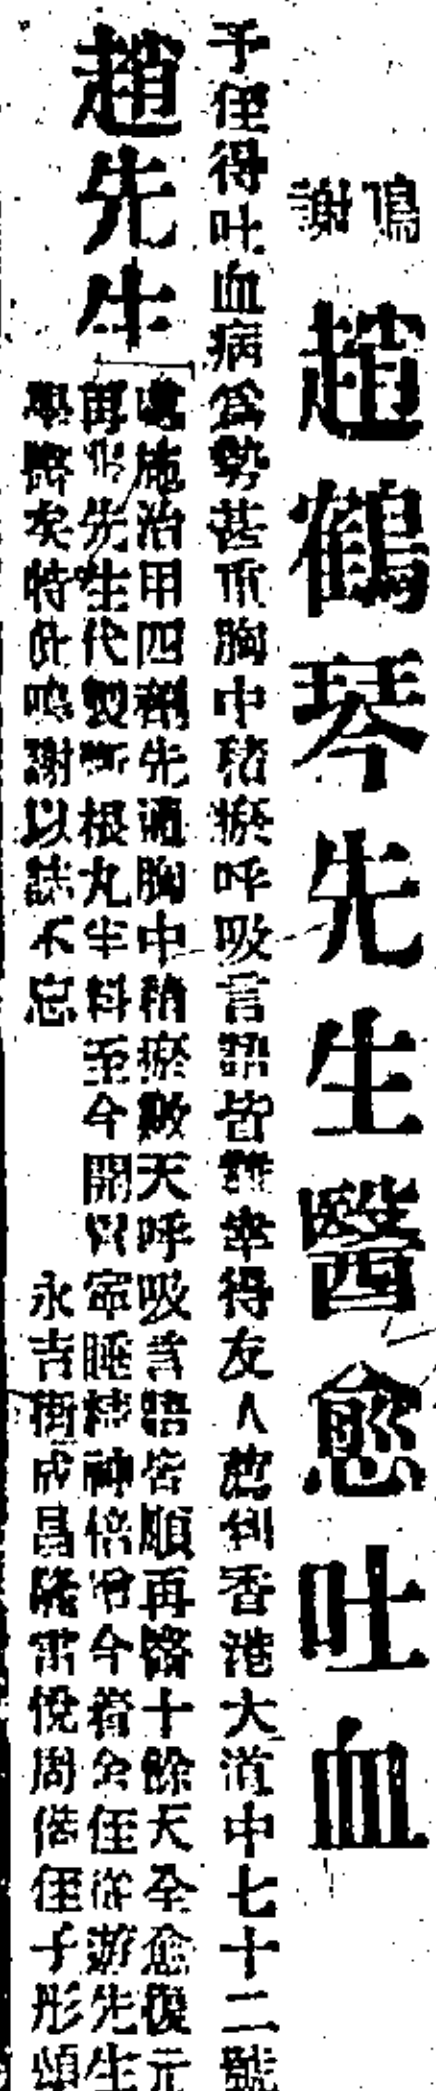 鳴謝
趙鶴琴先生醫愈吐血
予侄得吐血病為勢甚重胸中積瘀呼吸言語皆難幸得友人薦到香港大道中七十二號
趙先生
處施治用四劑先通胸中積瘀數天呼吸言語皆順再醫十餘天全愈復元
再求先生代製斷根丸半料至今開胃寧睡精神倍增今着余侄從遊先生
學醫矣特此鳴謝以誌不忘
永吉街成昌隆雷悅周偕侄子彤頌